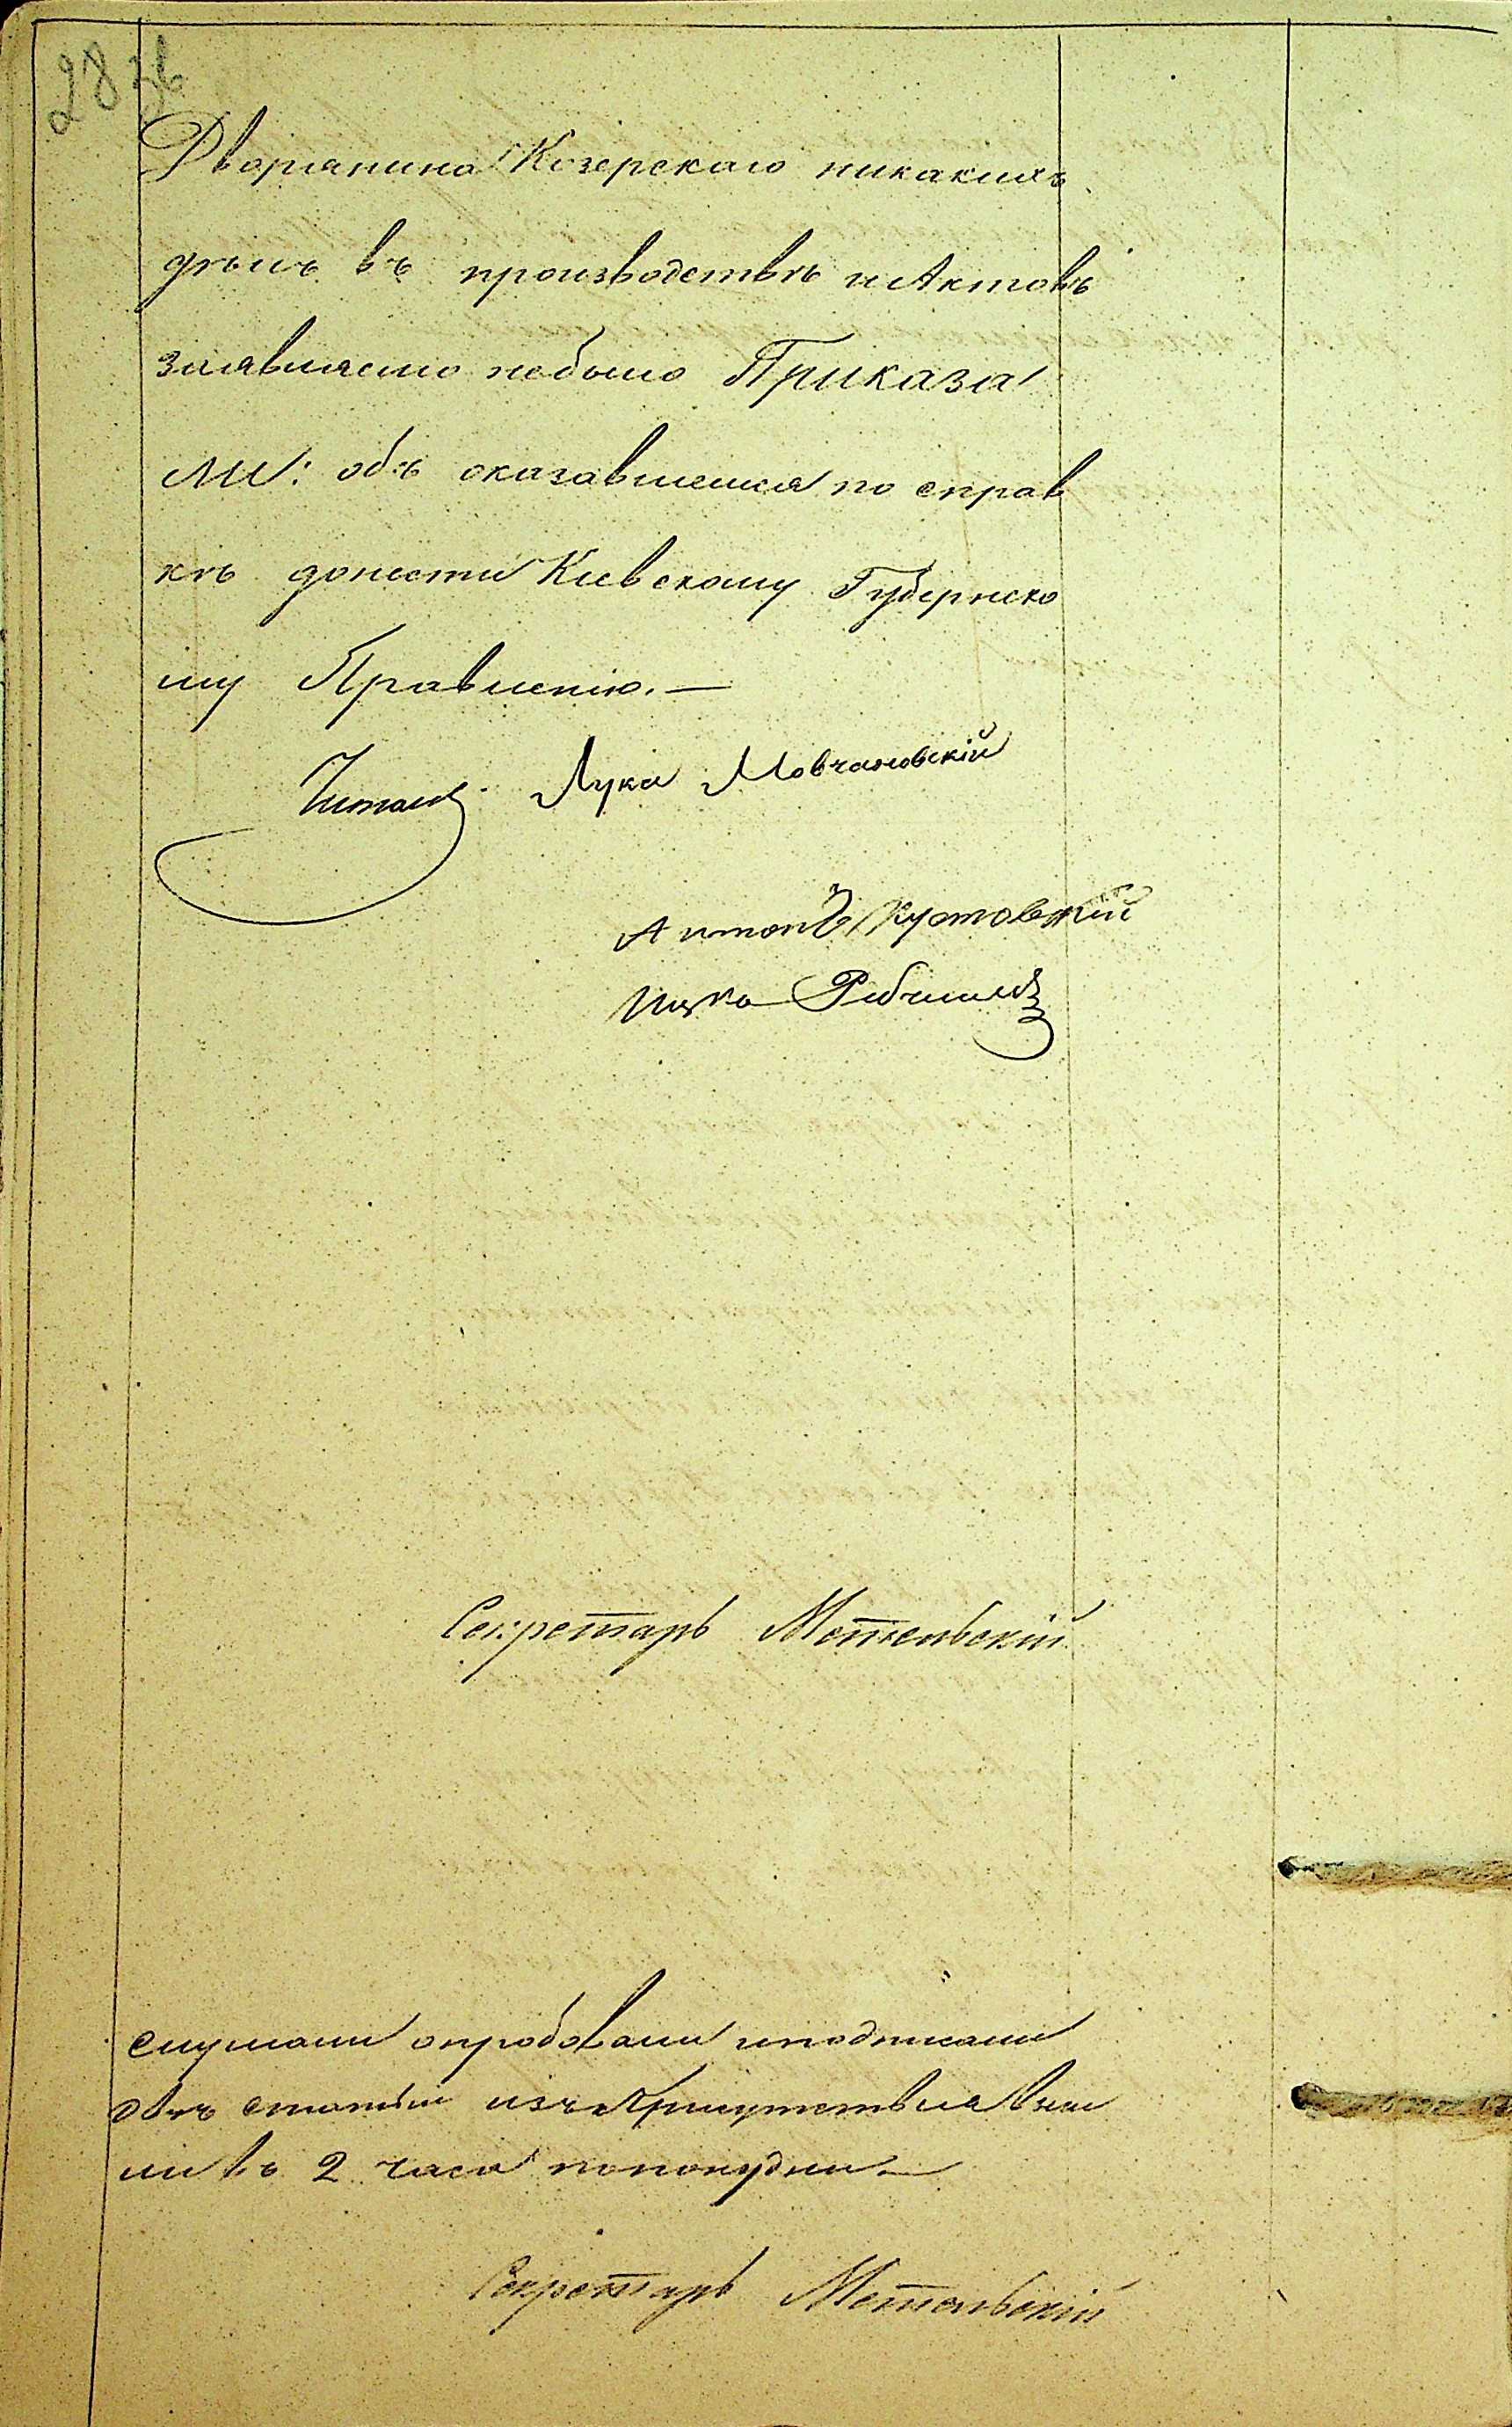 28 зв
Дворянина Козерскаго никакихъ
дѣлъ въ производствѣ и Актовъ
заявляемо небыло Приказа
ли: объ оказавшемся по справ
кѣ донести Кіевскому Губернско
му Правленію. —
Читалъ Лука Мовчановскій
Антонъ Кустовскій
Ицко
Секретарь Метельскій
слушали опробовали иподписали
двѣ статьи изъ Присутствія выш
ли въ 2 часа пополудни —
Секретарь Метельскій